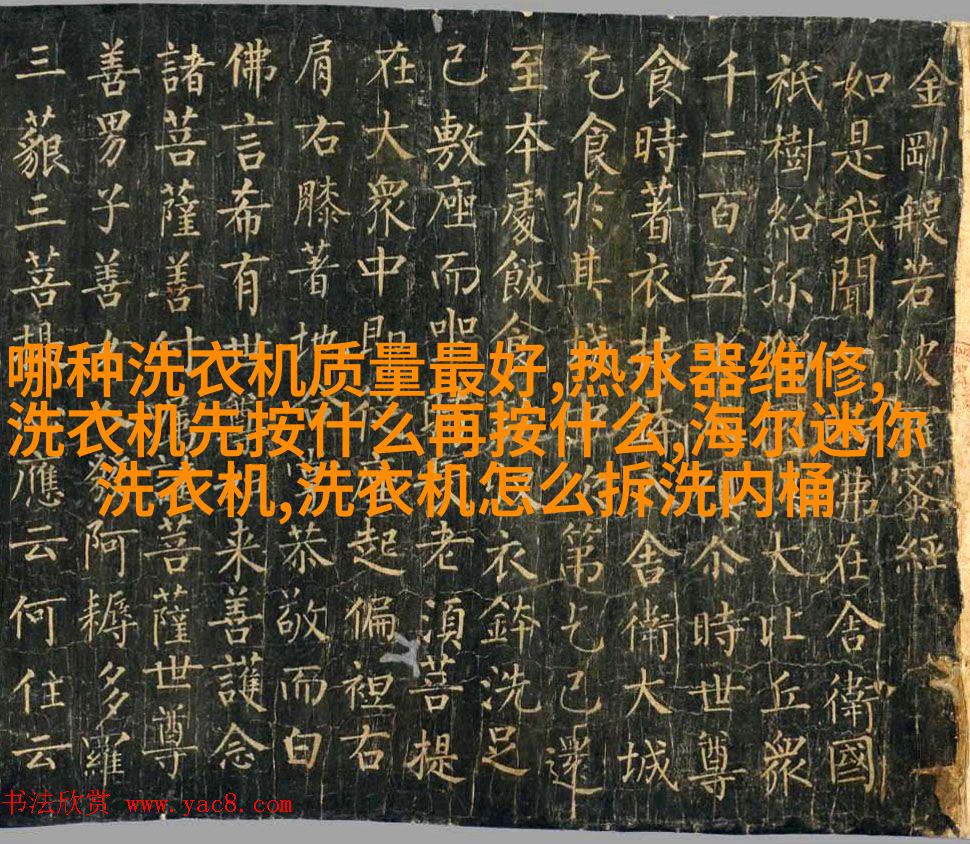 金剛般若波蜜經
如是我聞佛在舍衛國
祇樹給孤大比丘衆
千二百五尒時世尊
食時著衣持舍衛大城
乞食於其城第乞已還
至本處飯食衣鉢洗足
已敷座而坐老須菩提
在大衆中即起偏袒右
肩右膝著地恭敬而白
佛言希有世来善護念
諸菩薩善付菩薩世尊
善男子善發阿耨多羅
三藐三菩提應云何住云
哪种洗衣机质量最好,热水器维修,
洗衣机先按什么再按什么,海尔迷你
洗衣机,洗衣机怎么拆洗内桶
书法欣赏 www.yac8.com